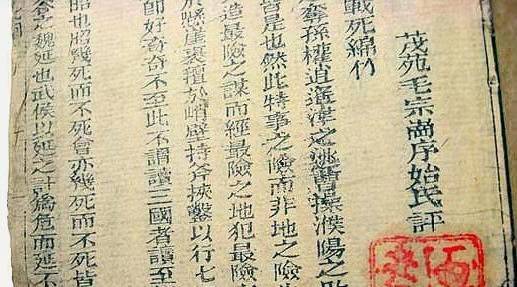 茂苑毛宗崗序始氏評
戰死綿竹
之奪孫權逍遙津之跳曹操濮陽之敗
皆是也然此特事之險而非地之險也
造最險之謀而經最險之地犯最險
於懸崖裹氊於峭壁持斧挾鑿以行七
師好奇奇不至此不謂讀三國者讀至
昭也昭幾死而不死會亦幾死而不死皆
會之魏延也武侯以延之計為危而延不